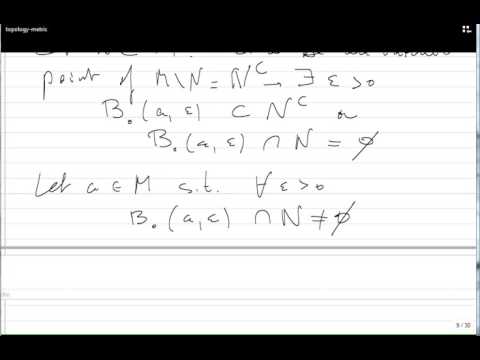 topology-metric
point of M\N = N^C → ∃ ε>0
B₀(a,ε) ⊂ N^C or
B₀(a,ε) ∩ N = ∅
Let a ∈ M s.t. ∀ ε>0
B₀(a,ε) ∩ N ≠ ∅
9 / 30